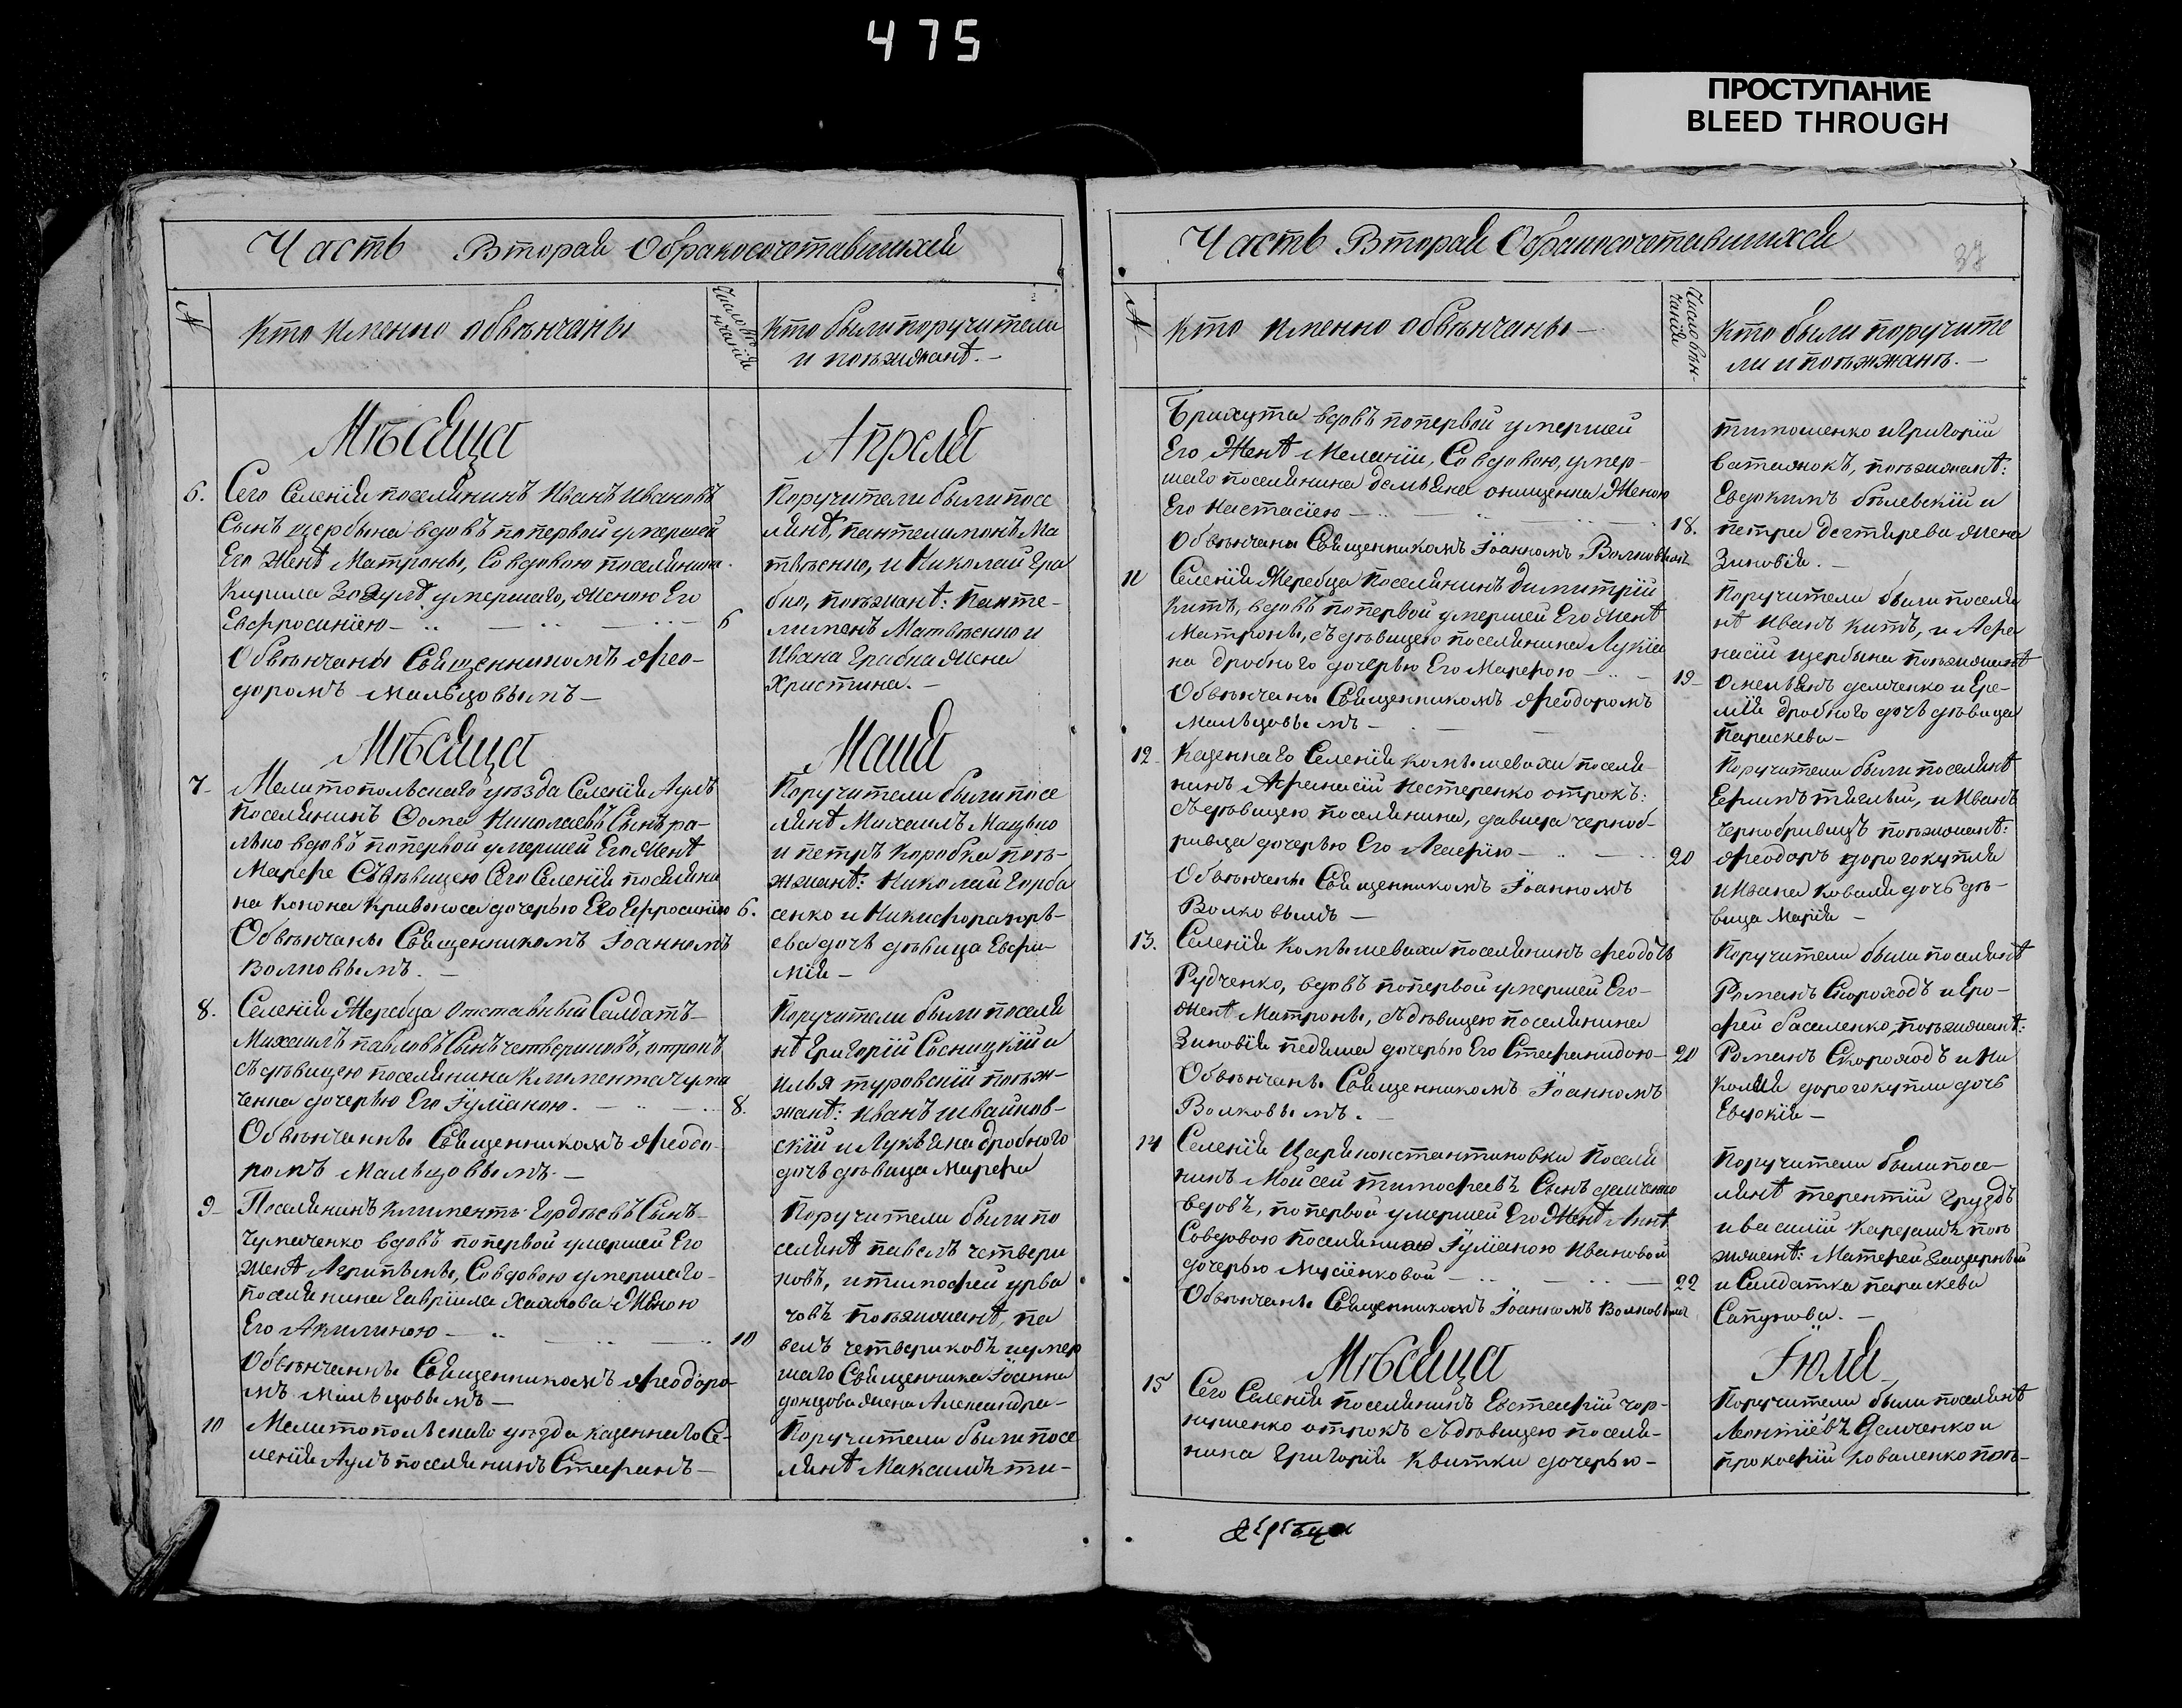 475
ПРОСТУПАНИЕ
BLEED THROUGH
Часть Вторая Обракосочетавшихся
№
Кто именно обвѣнчаны
Число вѣ
нчанія
Кто были поручители
и поѣзжанѣ.
Мѣсяца Апреля
6. Сего Селенія поселянинъ Иванъ Ивановъ
Сынъ щербина вдовъ по первой умершей
Его Женѣ Матроны, Со вдовою поселянина
Кирила Зозулѣ умершаго, Женою Его
Евфросиніею 6
Обвѣнчаны Священникомъ Фео-
доромъ Мальцовымъ
Поручители были посе
лянѣ, пантелимонъ Ма
твѣенко, и Николай Гра
бко, поѣзжанѣ: Панте-
лимонъ Матвѣенко и
Ивана Грабка Жена
Христина.
Мѣсяца Маия
7 Мелитопольскаго уѣзда Селенія Аулъ
Поселянинъ Фома Николаевъ Сынъ ра-
лько вдовъ по первой умершей Его Женѣ
Марѳе Съ дѣвицею Сего Селенія поселяни
на Конона Кривоноса дочерью Его Ефросиніею 6.
Обвѣнчаны Священникомъ Іоанномъ
Волковымъ.
Поручители были посе
лянѣ Михаилъ Мацько
и петръ Коробка поѣ-
жжанѣ: Николай Горба
сенко и Никифора юрь-
ева дочь дѣвица Евфи-
мія
8. Селенія Жеребца Отставный Солдатъ
Михаилъ павловъ Сынъ четвериковъ, отрокъ
съ дѣвицею поселянина Климента чума
ченка дочерью Его Іуліаною. 8.
Обвѣнчанны Священникомъ Феодо-
ромъ Мальцовымъ.
Поручители были поселя
нѣ Григорій Сосницкій и
илья туровскій поѣж-
жанѣ: Иванъ швайков-
скій и Лукьяна дробного
дочь дѣвица Марѳа
9 Поселянинъ климентъ Гордѣевъ Сынъ
Чумаченко вдовъ по первой умершей Его
женѣ Агрипѣны, Со вдовою умершаго
поселянина Гавріила Халчова Женою
Его Акилиною 10
Обвѣнчанны Священникомъ Феодоро
мъ Мальцовымъ
Поручители были по
селянѣ павелъ четвери
ковъ, и тимофей урва
човъ поѣзжанѣ, па
велъ четвериковъ и умер
шаго Священника Іоанна
донцова жена Александра
10 Мелитопольскаго уѣзда казеннаго Се-
ленія Аулъ поселянинъ Стефанъ
Поручители были посе
лянѣ Максимъ ти-
Часть Вторая Обракосочетавшихся
38
№
Кто именно обвѣнчаны
Число вѣн-
чанія
Кто были поручите
ли и поѣзжанѣ.
Брихута вдовъ по первой умершей
Его Женѣ Меланіи, Со вдовою, умер-
шаго поселянина демьяна онищенка Женою
Его Настасіею 18.
Обвѣнчаны Священникомъ Іоанномъ Волковымъ
тимошенко и Григорій
Сатанокъ, поѣзжанѣ:
Евдокимъ бѣлевскій и
петра дегтярева жена
Зиновія.
11 Селенія Жеребца поселянинъ димитрій
Китъ, вдовъ по первой умершей Его Женѣ
Матроны, съ дѣвицею поселянина Лукія
на дробного дочерью Его Марѳою 19
Обвѣнчаны Священникомъ Феодоромъ
Мальцовымъ
Поручители были поселя
нѣ Иванъ Китъ, и Афа
насій щербина поѣзжанѣ
Омельянъ демченко и Ере-
мія дробного дочь дѣвица
Параскева
12 Казеннаго Селенія комышевахи поселя-
нинъ Афанасій Нестеренко отрокъ:
съ дѣвицею поселянина, давида черноб-
ривца дочерью Его Агафіею 20
Обвѣнчаны Священникомъ Іоанномъ
Волковымъ
Поручители были поселянѣ
Ефимъ тяглый, и Иванъ
Чернобривецъ поѣзжанѣ:
Феодоръ дорогокупля
и Ивана Коваля дочь дѣ-
вица Марія
13. Селенія Комышевахи поселянинъ Феодотъ
Рудченко, вдовъ по первой умершей Его
Женѣ Матроны, съ дѣвицею поселянина
Зиновія педяша дочерью Его Стефанидою 20
Обвѣнчаны Священникомъ Іоанномъ
Волковымъ.
Поручители были поселянѣ
Романъ Скороходъ и Еро-
фей басаленко, поѣзжанѣ:
Романъ Скороходъ и Ни
колая дорогокупли дочь
Евдокія
14 Селенія Цариконстантиновки поселя
нинъ Мойсей тимофеевъ Сынъ демченко
вдовъ, по первой умершей Его Женѣ Аннѣ
Со вдовою поселянкою Іуліаною Ивановой
дочерью Мусіенковой 22
Обвѣнчаны Священникомъ Іоанномъ Волковымъ
Поручители были посе-
лянѣ терентій Груздъ
и василій Карезамъ поѣ
жжанѣ: Матфей Білрный
и Салдатка параскева
Сапунова.
Мѣсяца Іюля
15 Сего Селенія поселянинъ Евстафій чор-
нушенко отрокъ съ дѣвицею поселя-
нина Григорія Квитки дочерью
Поручители были поселянѣ
Леонтіевъ Демченко и
прокофій коваленко поѣ-